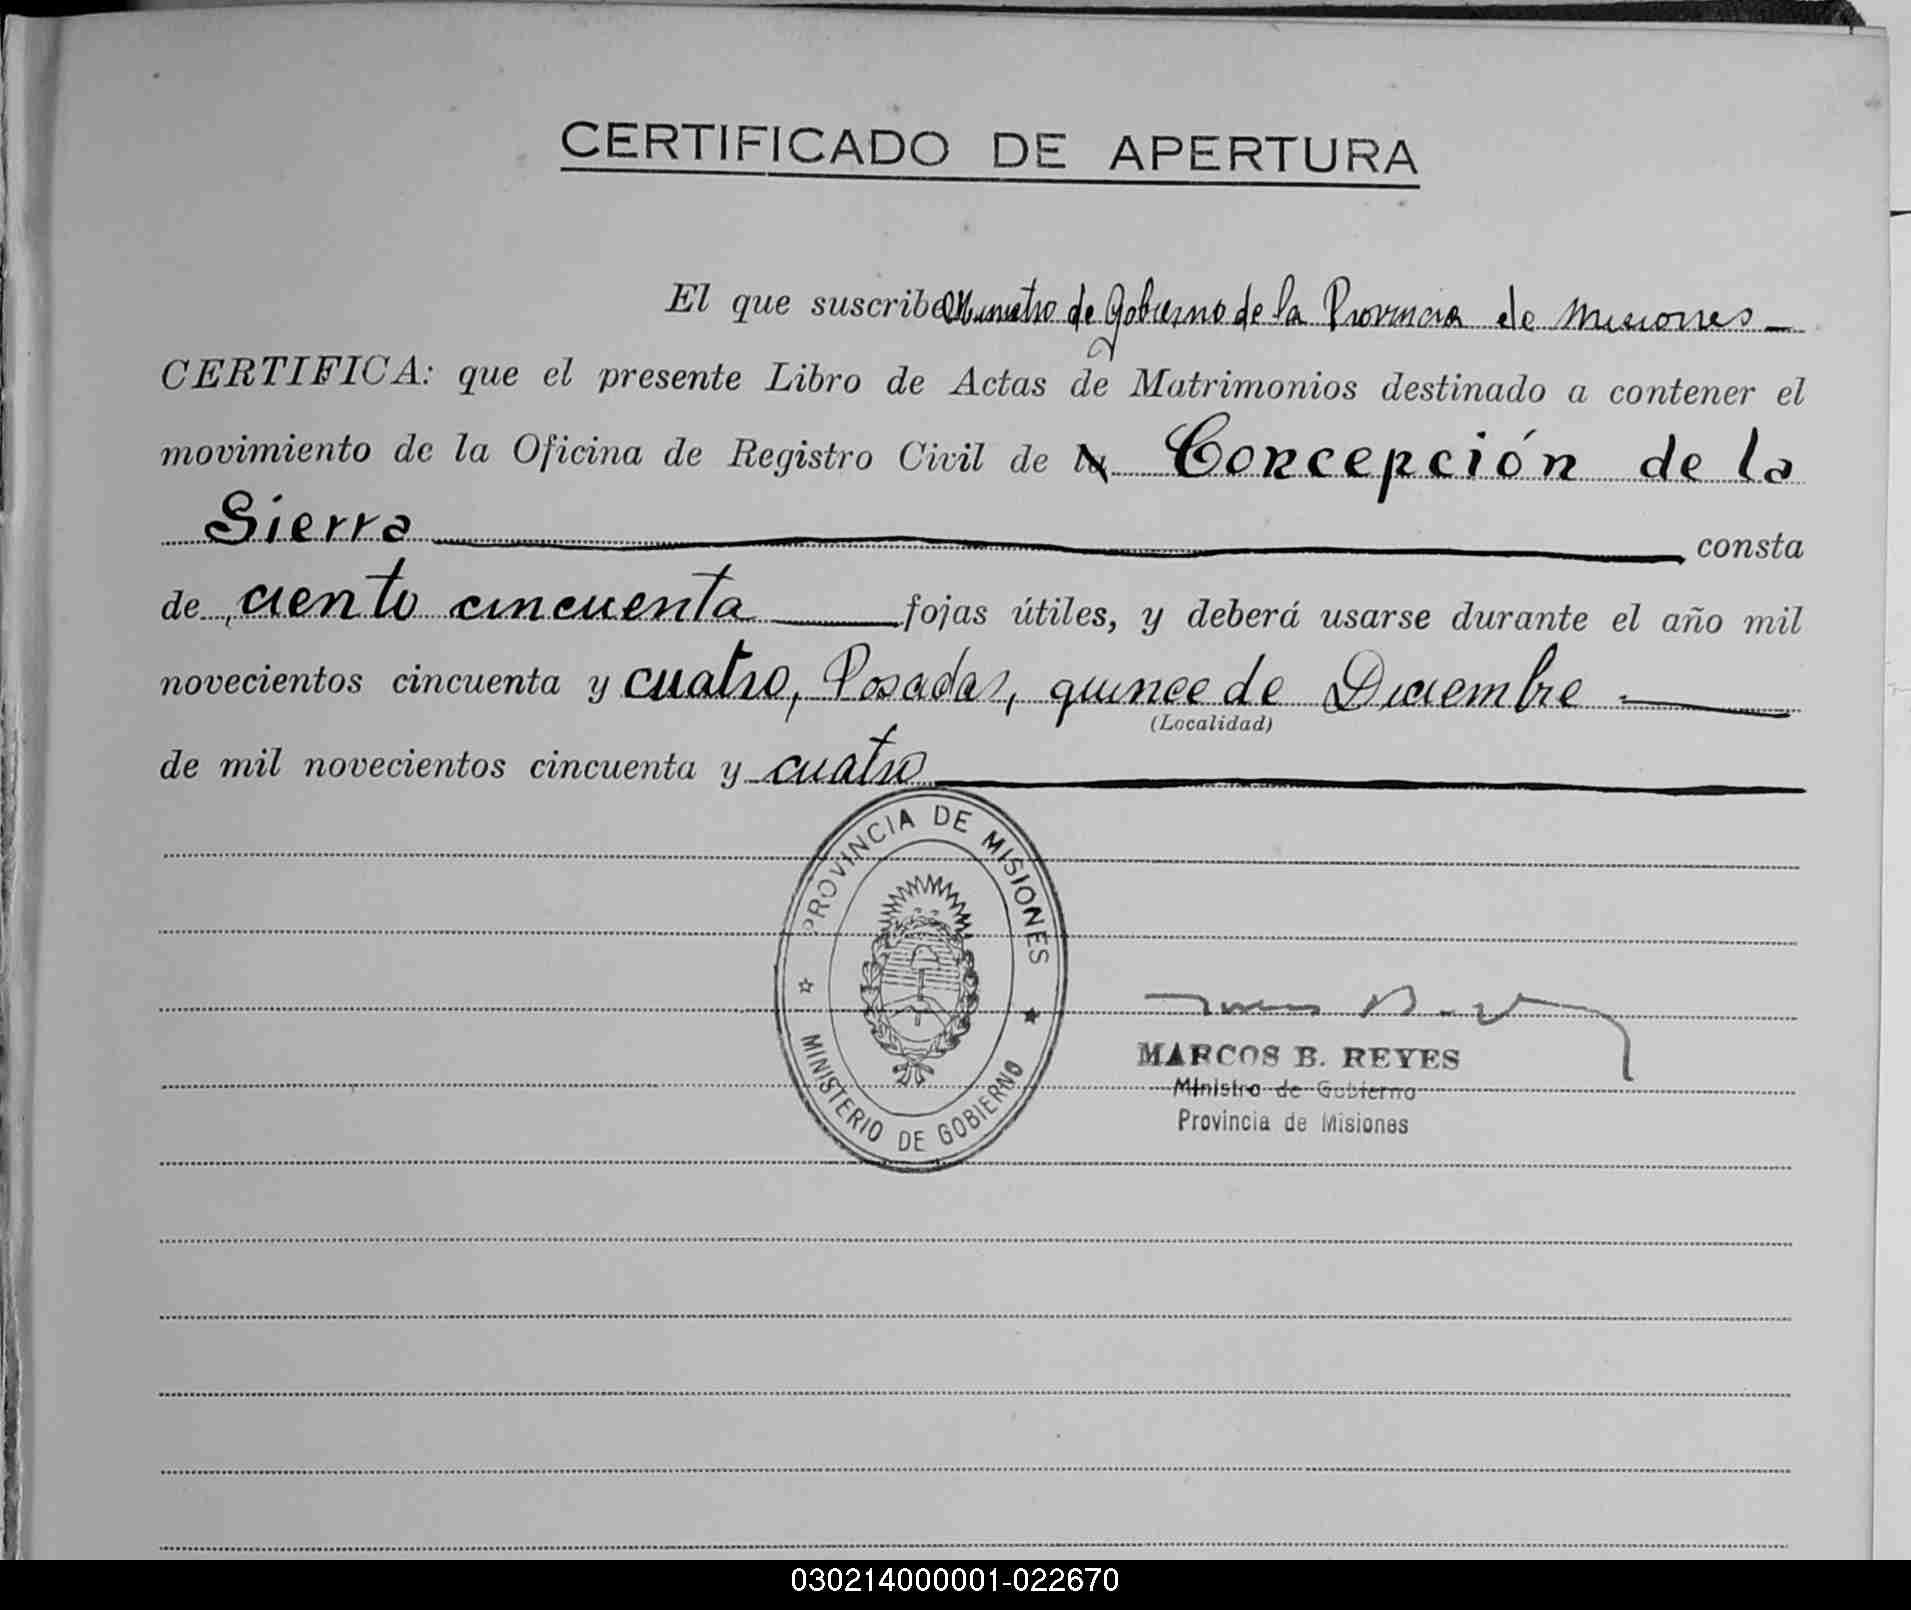 CERTIFICADO DE APERTURA
El que suscribe Ministro de Gobierno de la Provincia de Misiones
CERTIFICA: que el presente Libro de Actas de Matrimonios destinado a contener el
movimiento de la Oficina de Registro Civil de Concepción de la
Sierra consta
de ciento cincuenta fojas útiles, y deberá usarse durante el año mil
novecientos cincuenta y cuatro, Posadas, quince de Diciembre
(Localidad)
de mil novecientos cincuenta y cuatro
PROVINCIA DE MISIONES
MINISTERIO DE GOBIERNO
MARCOS B. REYES
Ministro de Gobierno
Provincia de Misiones
030214000001-022670